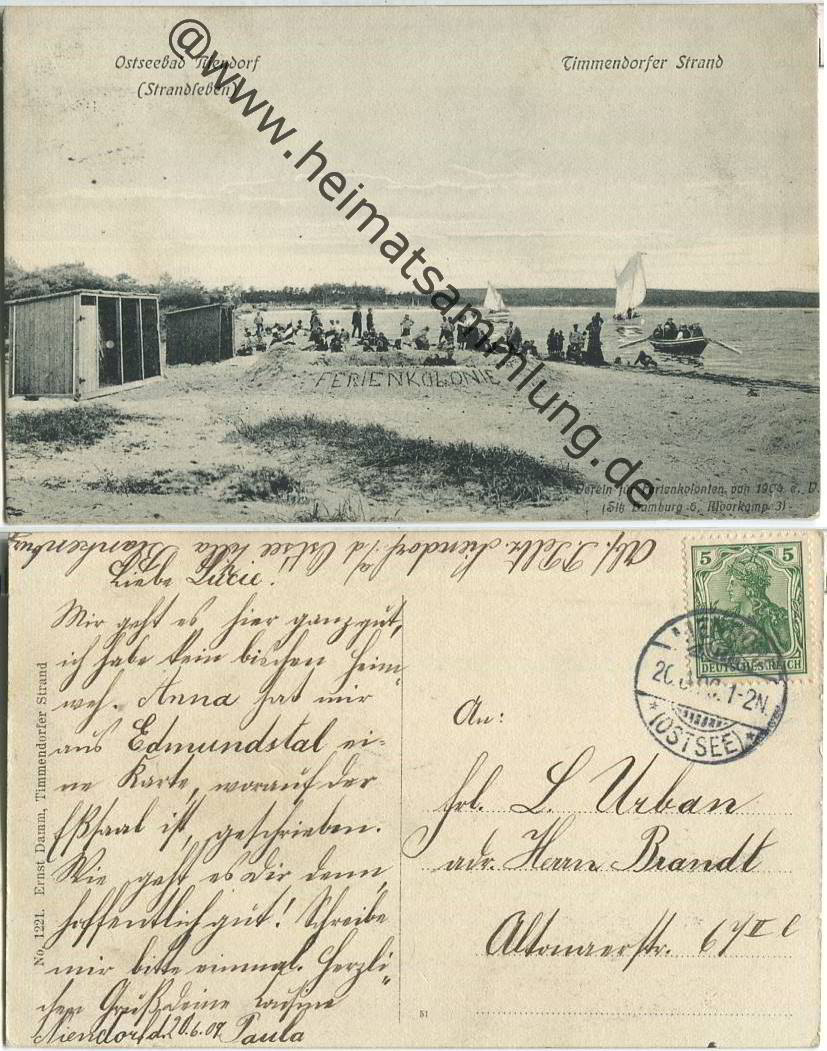 Ostseebad Niendorf
(Strandleben)
Timmendorfer Strand
@www.heimatsammlung.de
FERIENKOLONIE
Verein für Ferienkolonien von 1904 e. V.
(Sitz Hamburg 6, Moorkamp 3)
Niendorf a/d Ostsee Villa Blankenburg
Liebe Luzie!
Mir geht es hier ganz gut,
ich habe kein bischen Heim-
weh. Anna hat mir
aus Edmundstal ei-
ne Karte, worauf der
Eßsaal ist, geschrieben.
Wie geht es Dir denn,
hoffentlich gut! Schreibe
mir bitte einmal. Herzli-
chen Gruß Deine Cousine
Niendorf d. 20.6.09 Paula
No. 1221. Ernst Damm, Timmendorfer Strand
5 5
DEUTSCHES REICH
1-2N.
*(OSTSEE)*
An:
Frl. L. Urban
adr. Herrn Brandt
Altonaerstr. 67 II l
51